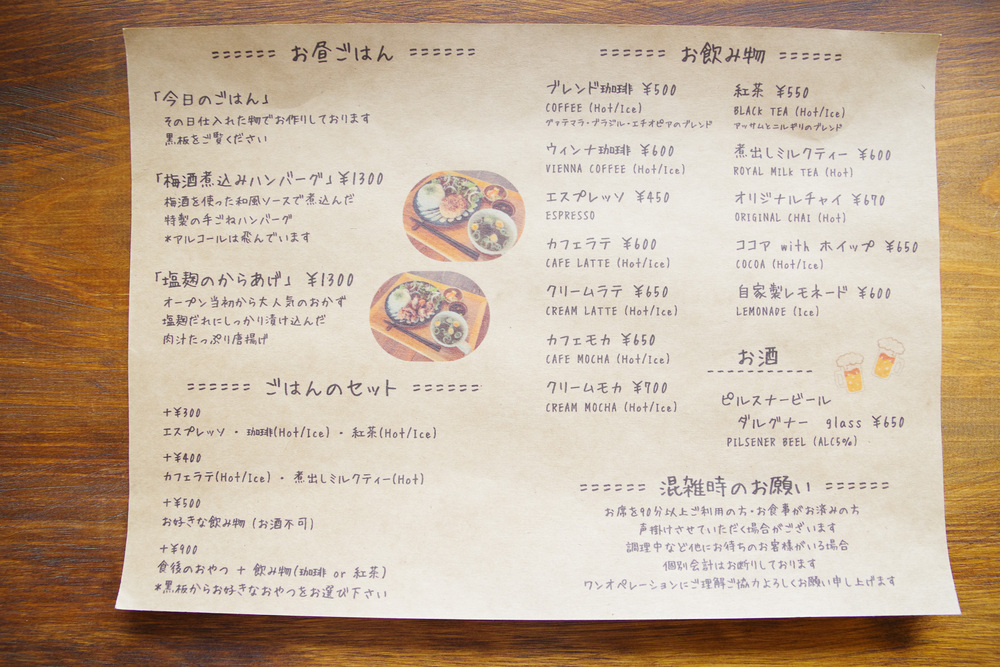 ====== お昼ごはん ======
「今日のごはん」
その日仕入れた物でお作りしております
黒板をご覧ください
「梅酒煮込みハンバーグ」¥1300
梅酒を使った和風ソースで煮込んだ
特製の手ごねハンバーグ
*アルコールは飛んでいます
「塩麹のからあげ」 ¥1300
オープン当初から大人気のおかず
塩麹だれにしっかり漬け込んだ
肉汁たっぷり唐揚げ
====== ごはんのセット ======
+¥300
エスプレッソ ・ 珈琲(Hot/Ice) ・ 紅茶(Hot/Ice)
+¥400
カフェラテ(Hot/Ice) ・ 煮出しミルクティー(Hot)
+¥500
お好きな飲み物 (お酒不可)
+¥900
食後のおやつ + 飲み物(珈琲 or 紅茶)
*黒板からお好きなおやつをお選び下さい
====== お飲み物 ======
ブレンド珈琲 ¥500
COFFEE (Hot/Ice)
グァテマラ・ブラジル・エチオピアのブレンド
ウィンナ珈琲 ¥600
VIENNA COFFEE (Hot/Ice)
エスプレッソ ¥450
ESPRESSO
カフェラテ ¥600
CAFE LATTE (Hot/Ice)
クリームラテ ¥650
CREAM LATTE (Hot/Ice)
カフェモカ ¥650
CAFE MOCHA (Hot/Ice)
クリームモカ ¥700
CREAM MOCHA (Hot/Ice)
紅茶 ¥550
BLACK TEA (Hot/Ice)
アッサムとニルギリのブレンド
煮出しミルクティー ¥600
ROYAL MILK TEA (Hot)
オリジナルチャイ ¥670
ORIGINAL CHAI (Hot)
ココア with ホイップ ¥650
COCOA (Hot/Ice)
自家製レモネード ¥600
LEMONADE (Ice)
お酒
ピルスナービール
ダルグナー glass ¥650
PILSENER BEEL (ALC5%)
====== 混雑時のお願い ======
お席を90分以上ご利用の方・お食事がお済みの方
声掛けさせていただく場合がございます
調理中など他にお待ちのお客様がいる場合
個別会計はお断りしております
ワンオペレーションにご理解ご協力よろしくお願い申し上げます